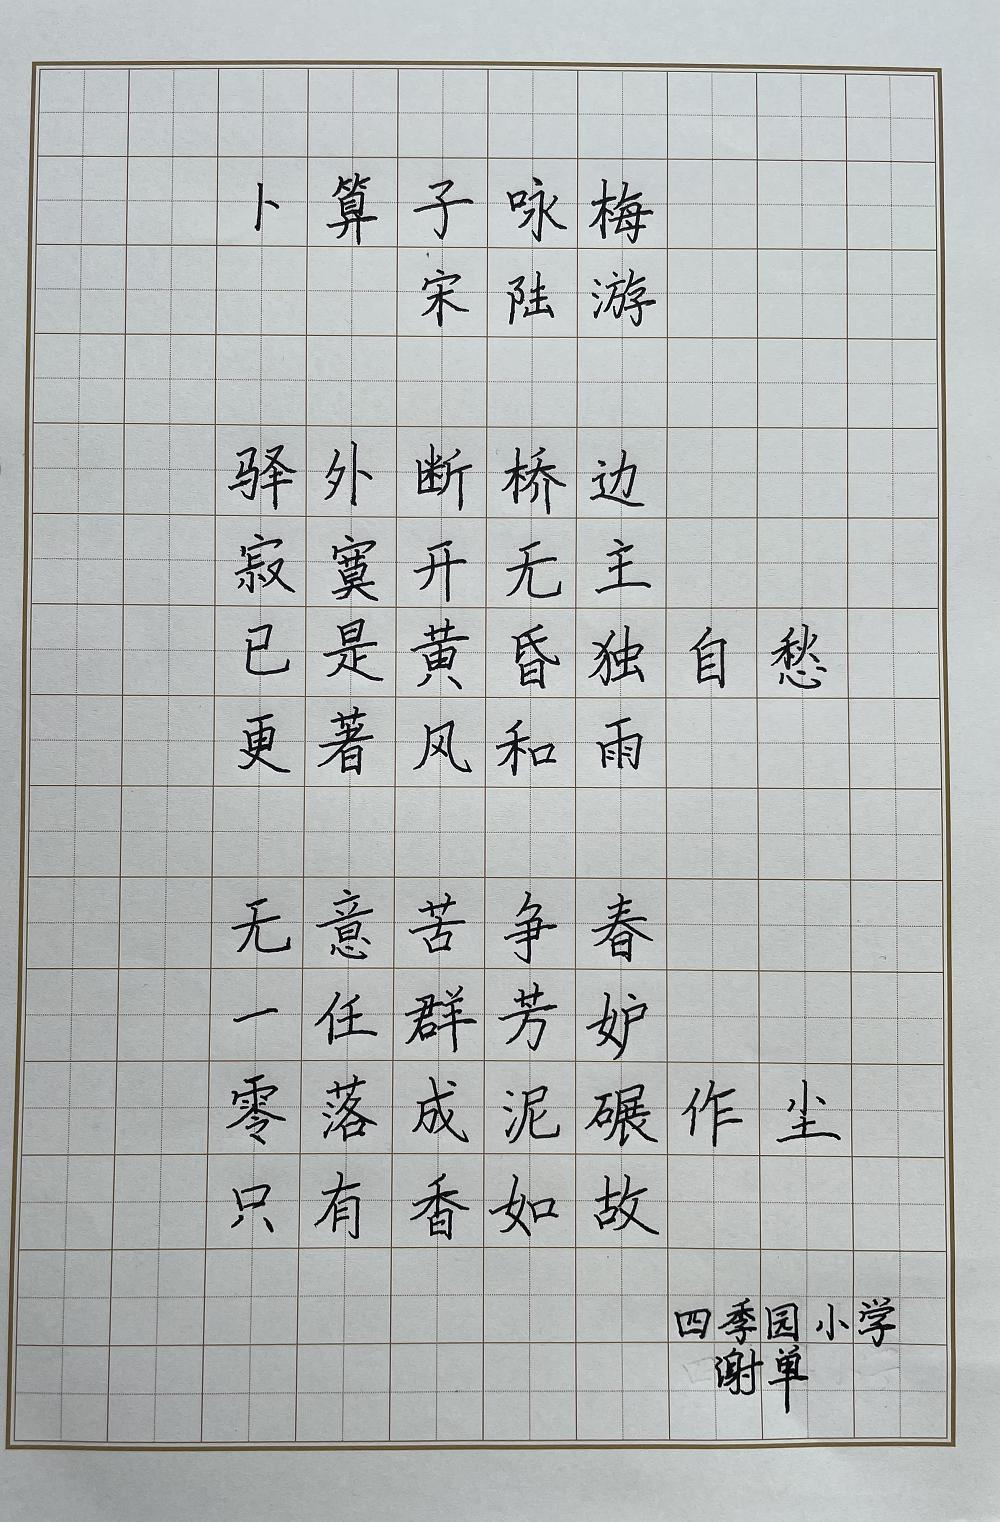 卜算子咏梅
宋陆游
驿外断桥边
寂寞开无主
已是黄昏独自愁
更著风和雨
无意苦争春
一任群芳妒
零落成泥碾作尘
只有香如故
四季园小学
谢单